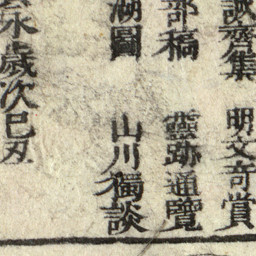 誠齋集 明文奇賞
部稿 靈跡通覽
湖圖 山川獨談
永歲次巳丑